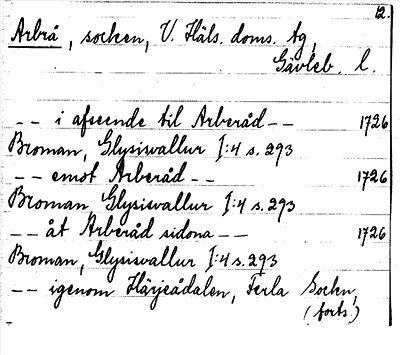 12.
Arbrå, socken, V. Häls. doms. tg,
Gävleb. l.
-- i afseende til Arberåd -- 1726
Broman, Glysisvallur I:4 s. 293
-- emot Arberåd -- 1726
Broman Glysisvallur I:4 s. 293
-- åt Arberåd sidona -- 1726
Broman, Glysisvallur I:4 s. 293
-- igenom Härjeådalen, Ferla Sockn,
(forts.)